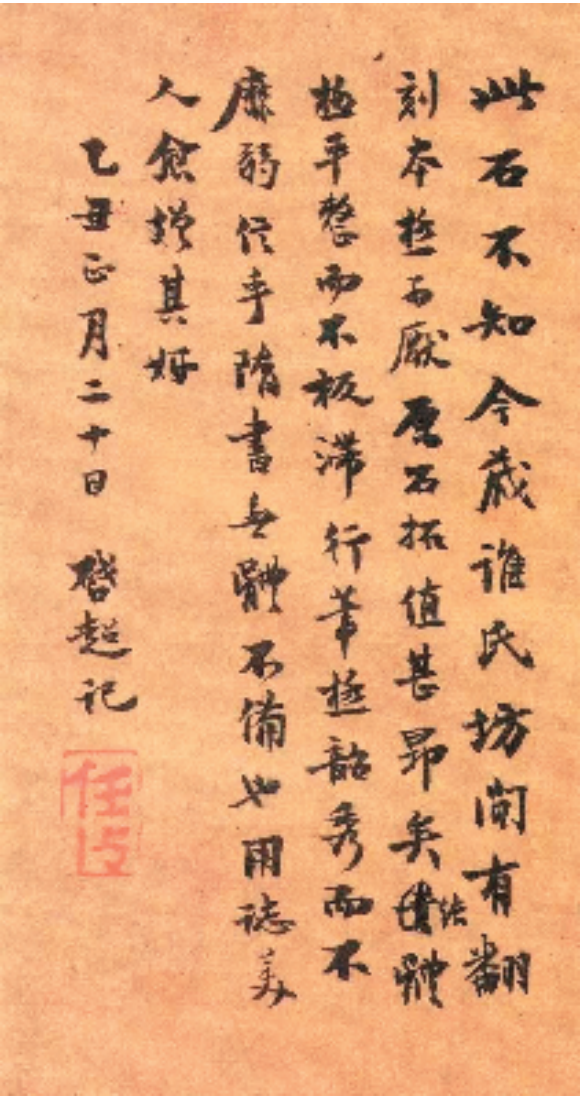 此石不知今藏誰氏坊間有翻
刻本極可厭原石拓值甚昂矣結體
極平整而不板滯行筆極韶秀而不
靡弱信乎隋書無體不備也用誌美
人增其好
乙丑正月二十日 啓超記
任公